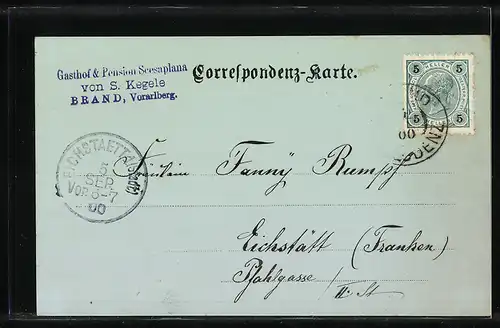 Gasthof & Pension Scesaplana
von S. Kegele
BRAND, Vorarlberg.
Correspondenz-Karte.
5 HELLER 5
5 5
00
UDENZ
EICHSTAETT (Stadt)
5
SEP
VOR 6-7
00
Fräulein Fanny Rumpf
Eichstätt (Franken)
Pfahlgasse II. St